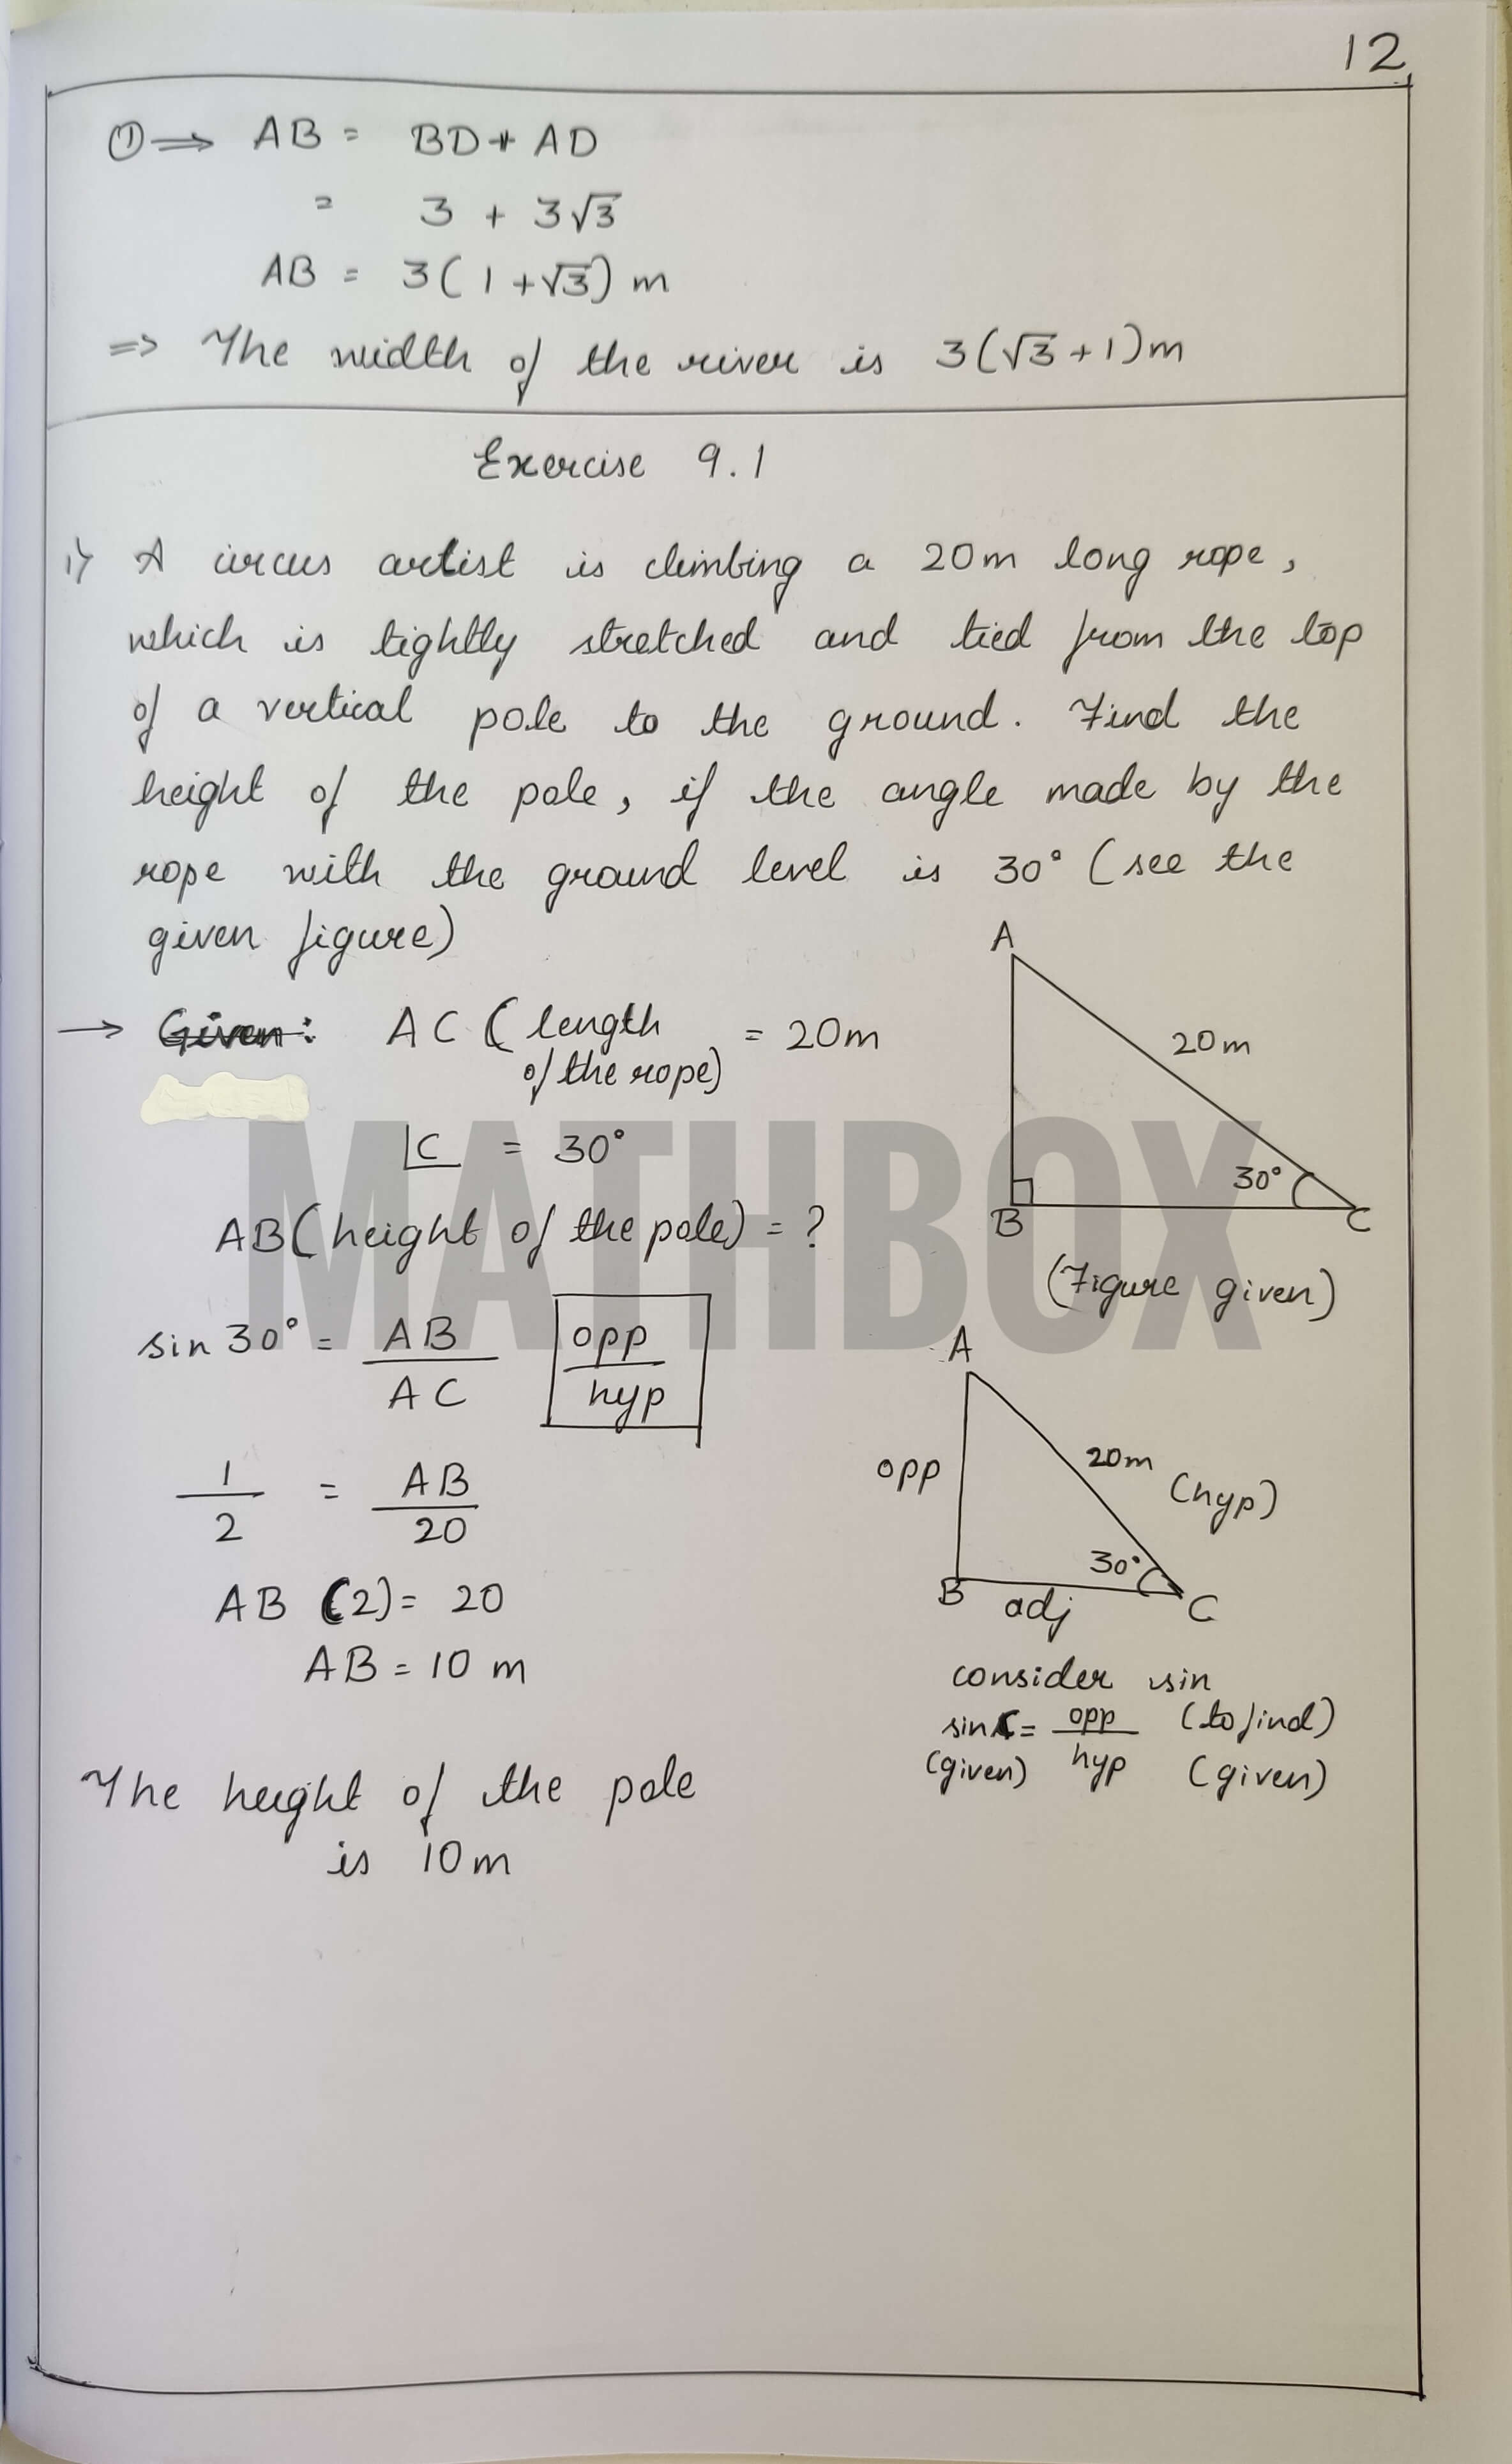 12
① ⟹ AB = BD + AD
= 3 + 3√3
AB = 3(1+√3) m
=> The width of the river is 3(√3+1)m
Exercise 9.1
1) A circus artist is climbing a 20m long rope,
which is tightly stretched and tied from the top
of a vertical pole to the ground. Find the
height of the pole, if the angle made by the
rope with the ground level is 30° (see the
given figure)
A
20m
30°
B
C
(Figure given)
→ Given: AC (length of the rope) = 20m
∠C = 30°
AB (height of the pole) = ?
MATHBOX
sin 30° = AB/AC opp/hyp
1/2 = AB/20
AB (2) = 20
AB = 10 m
The height of the pole
is 10m
A
opp
20m (hyp)
30°
B adj C
consider sin
sin C = opp/hyp (to find)
(given) (given)